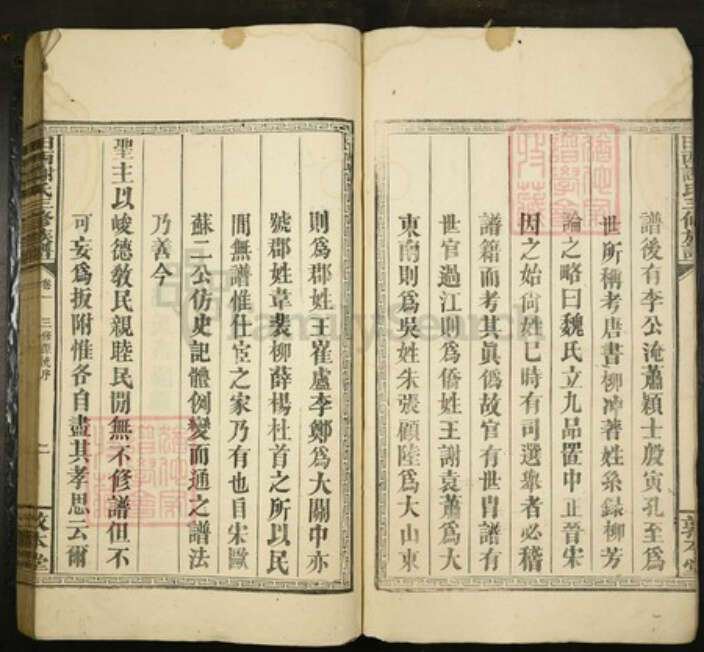 譜後有李公淹蕭穎士殷寅孔至爲
世所稱考唐書柳冲著姓系錄柳芳
論之略曰魏氏立九品置中正晉宋
因之始尙姓已時有司選舉者必稽
譜籍而考其眞僞故官有世胄譜有
世官過江則爲僑姓王謝袁蕭爲大
東南則爲吳姓朱張顧陸爲大山東
則爲郡姓王崔盧李鄭爲大關中亦
號郡姓韋裴柳薛楊杜首之所以民
間無譜惟仕宦之家乃有也自宋歐
蘇二公仿史記體例變而通之譜法
乃善今
聖主以峻德敎民親睦民間無不修譜但不
可妄爲扳附惟各自盡其孝思云爾
謝氏三修族譜
卷一
三修
序
二
敦本堂
FamilySearch